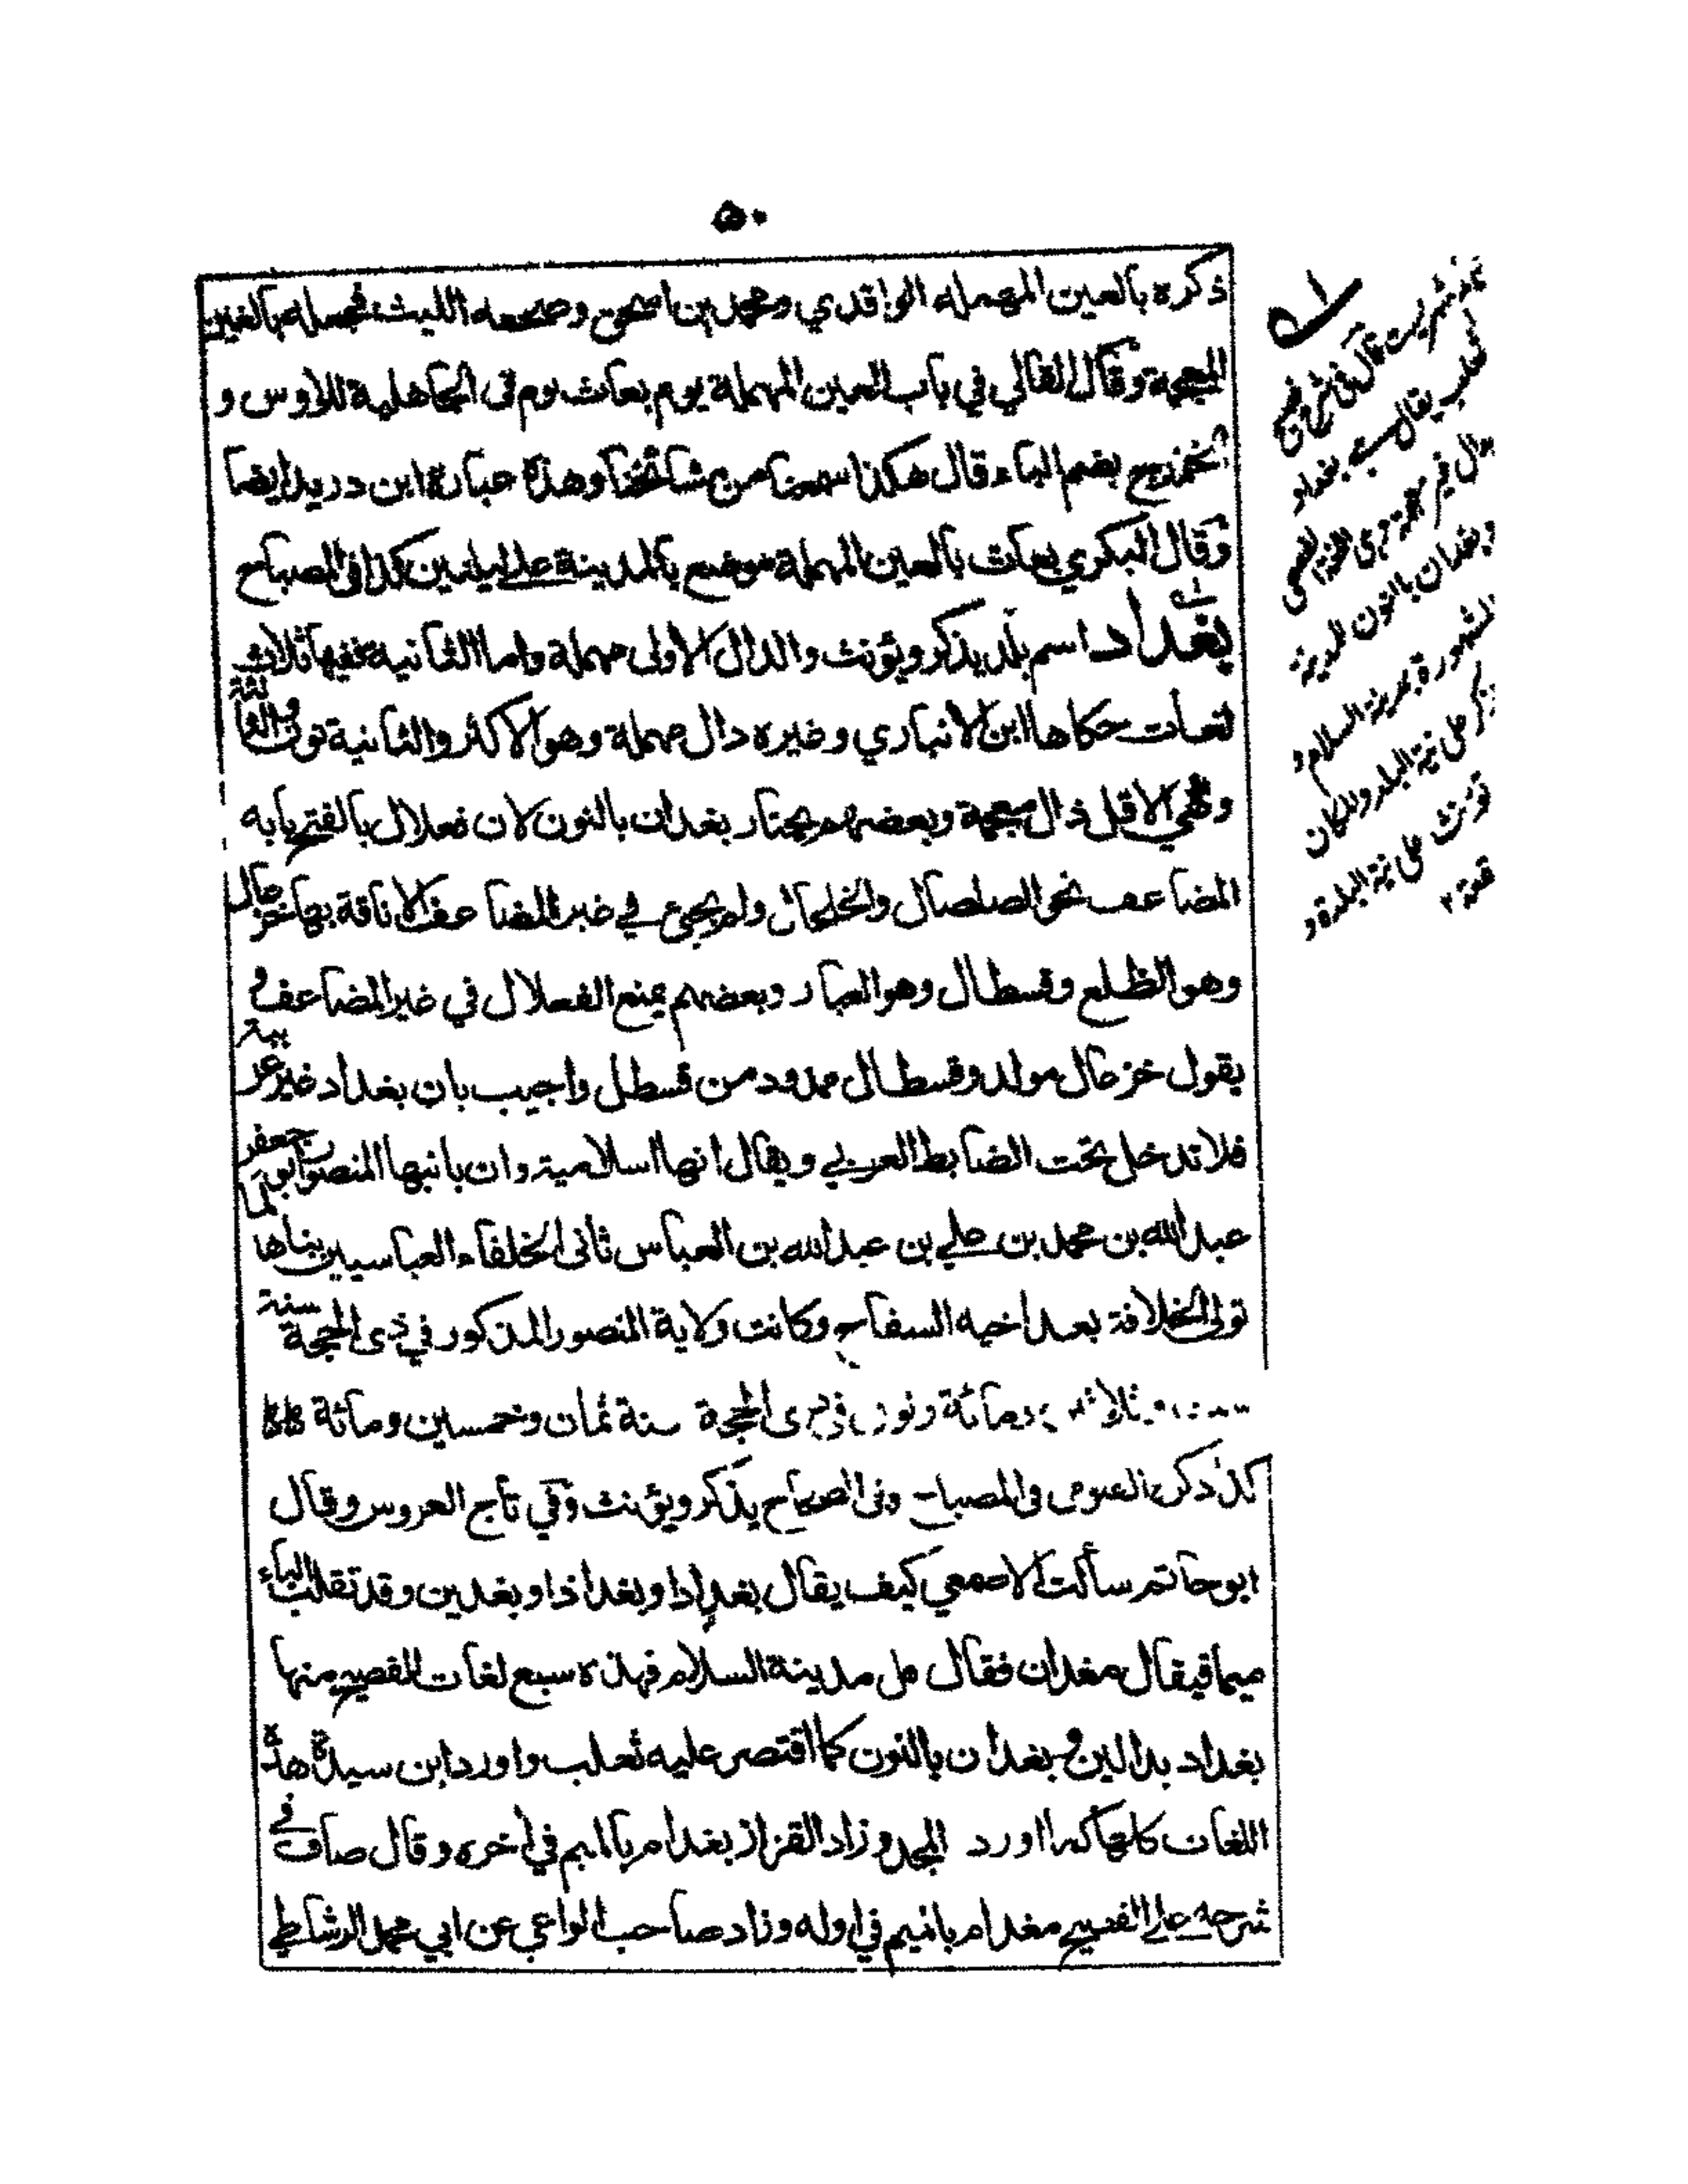 ٥٠
ذكره بالعين المهمله الواقدي ومحمد بن اسحق وصحفه الليث فجعله بالغين
المعجمة وقال القالي في باب العين المهملة يوم بعاث يوم في الجاهلية للاوس و
الخزرج بضم الباء قال هكذا سمعنا من مشائخنا وهذه عبارة ابن دريد ايضا
وقال البكري بعاث بالعين المهملة موضع بالمدينة على ليلتين كذا في المصباح
بغداد اسم بلد يذكر ويؤنث والدال الاولى مهملة واما الثانية ففيها ثلاث
لغات حكاها ابن الانباري وغيره دال مهملة وهو الاكثر والثانية نون والثالثة
وهي الاقل ذال معجمة وبعضهم يختار بغدان بالنون لان فعلال بالفتح بابه
المضاعف نحو الصلصال والخلخال ولم يجئ في غير المضاعف الا ناقة بها خزعال
وهو الظلع وقسطال وهو الغبار وبعضهم يمنع الفعلال في غير المضاعف و
يقول خزعال مولد وقسطال ممدود من قسطل واجيب بان بغداد غير عربية
فلا تدخل تحت الضابط العربي ويقال انها اسلامية وان بانيها المنصور ابو جعفر
عبد الله بن محمد بن علي بن عبد الله بن العباس ثانى الخلفاء العباسيين بناها لما
تولى الخلافة بعد اخيه السفاح وكانت ولاية المنصور المذكور في ذى الحجة سنة
وثلاثين ومائة وتوفى في ذى الحجة سنة ثمان وخمسين ومائة
كذا ذكره الفيومى فى المصباح وفى الصحاح يذكر ويؤنث وفي تاج العروس وقال
ابو حاتم سألت الاصمعي كيف يقال بغداد او بغداذ او بغدين وقد تقلب الباء
ميما فيقال مغدان فقال قل مدينة السلام فهذه سبع لغات الفصيح منها
بغداد بدالين وبغدان بالنون كما اقتصر عليه ثعلب واورد ابن سيدة هذه
اللغات كلها كما اورد المجد وزاد القزاز بغدام بالميم في اخره وقال صاف في
شرحه على الفصيح مغدام بالميم في اوله وزاد صاحب الواعي عن ابي محمد الرشاطي
ثعلب يقال بغداد
وبغدان بالنون لمدينة
المشهورة بمدينة السلام و
تذكر على نية البلد والمكان
تؤنث على نية البلدة و